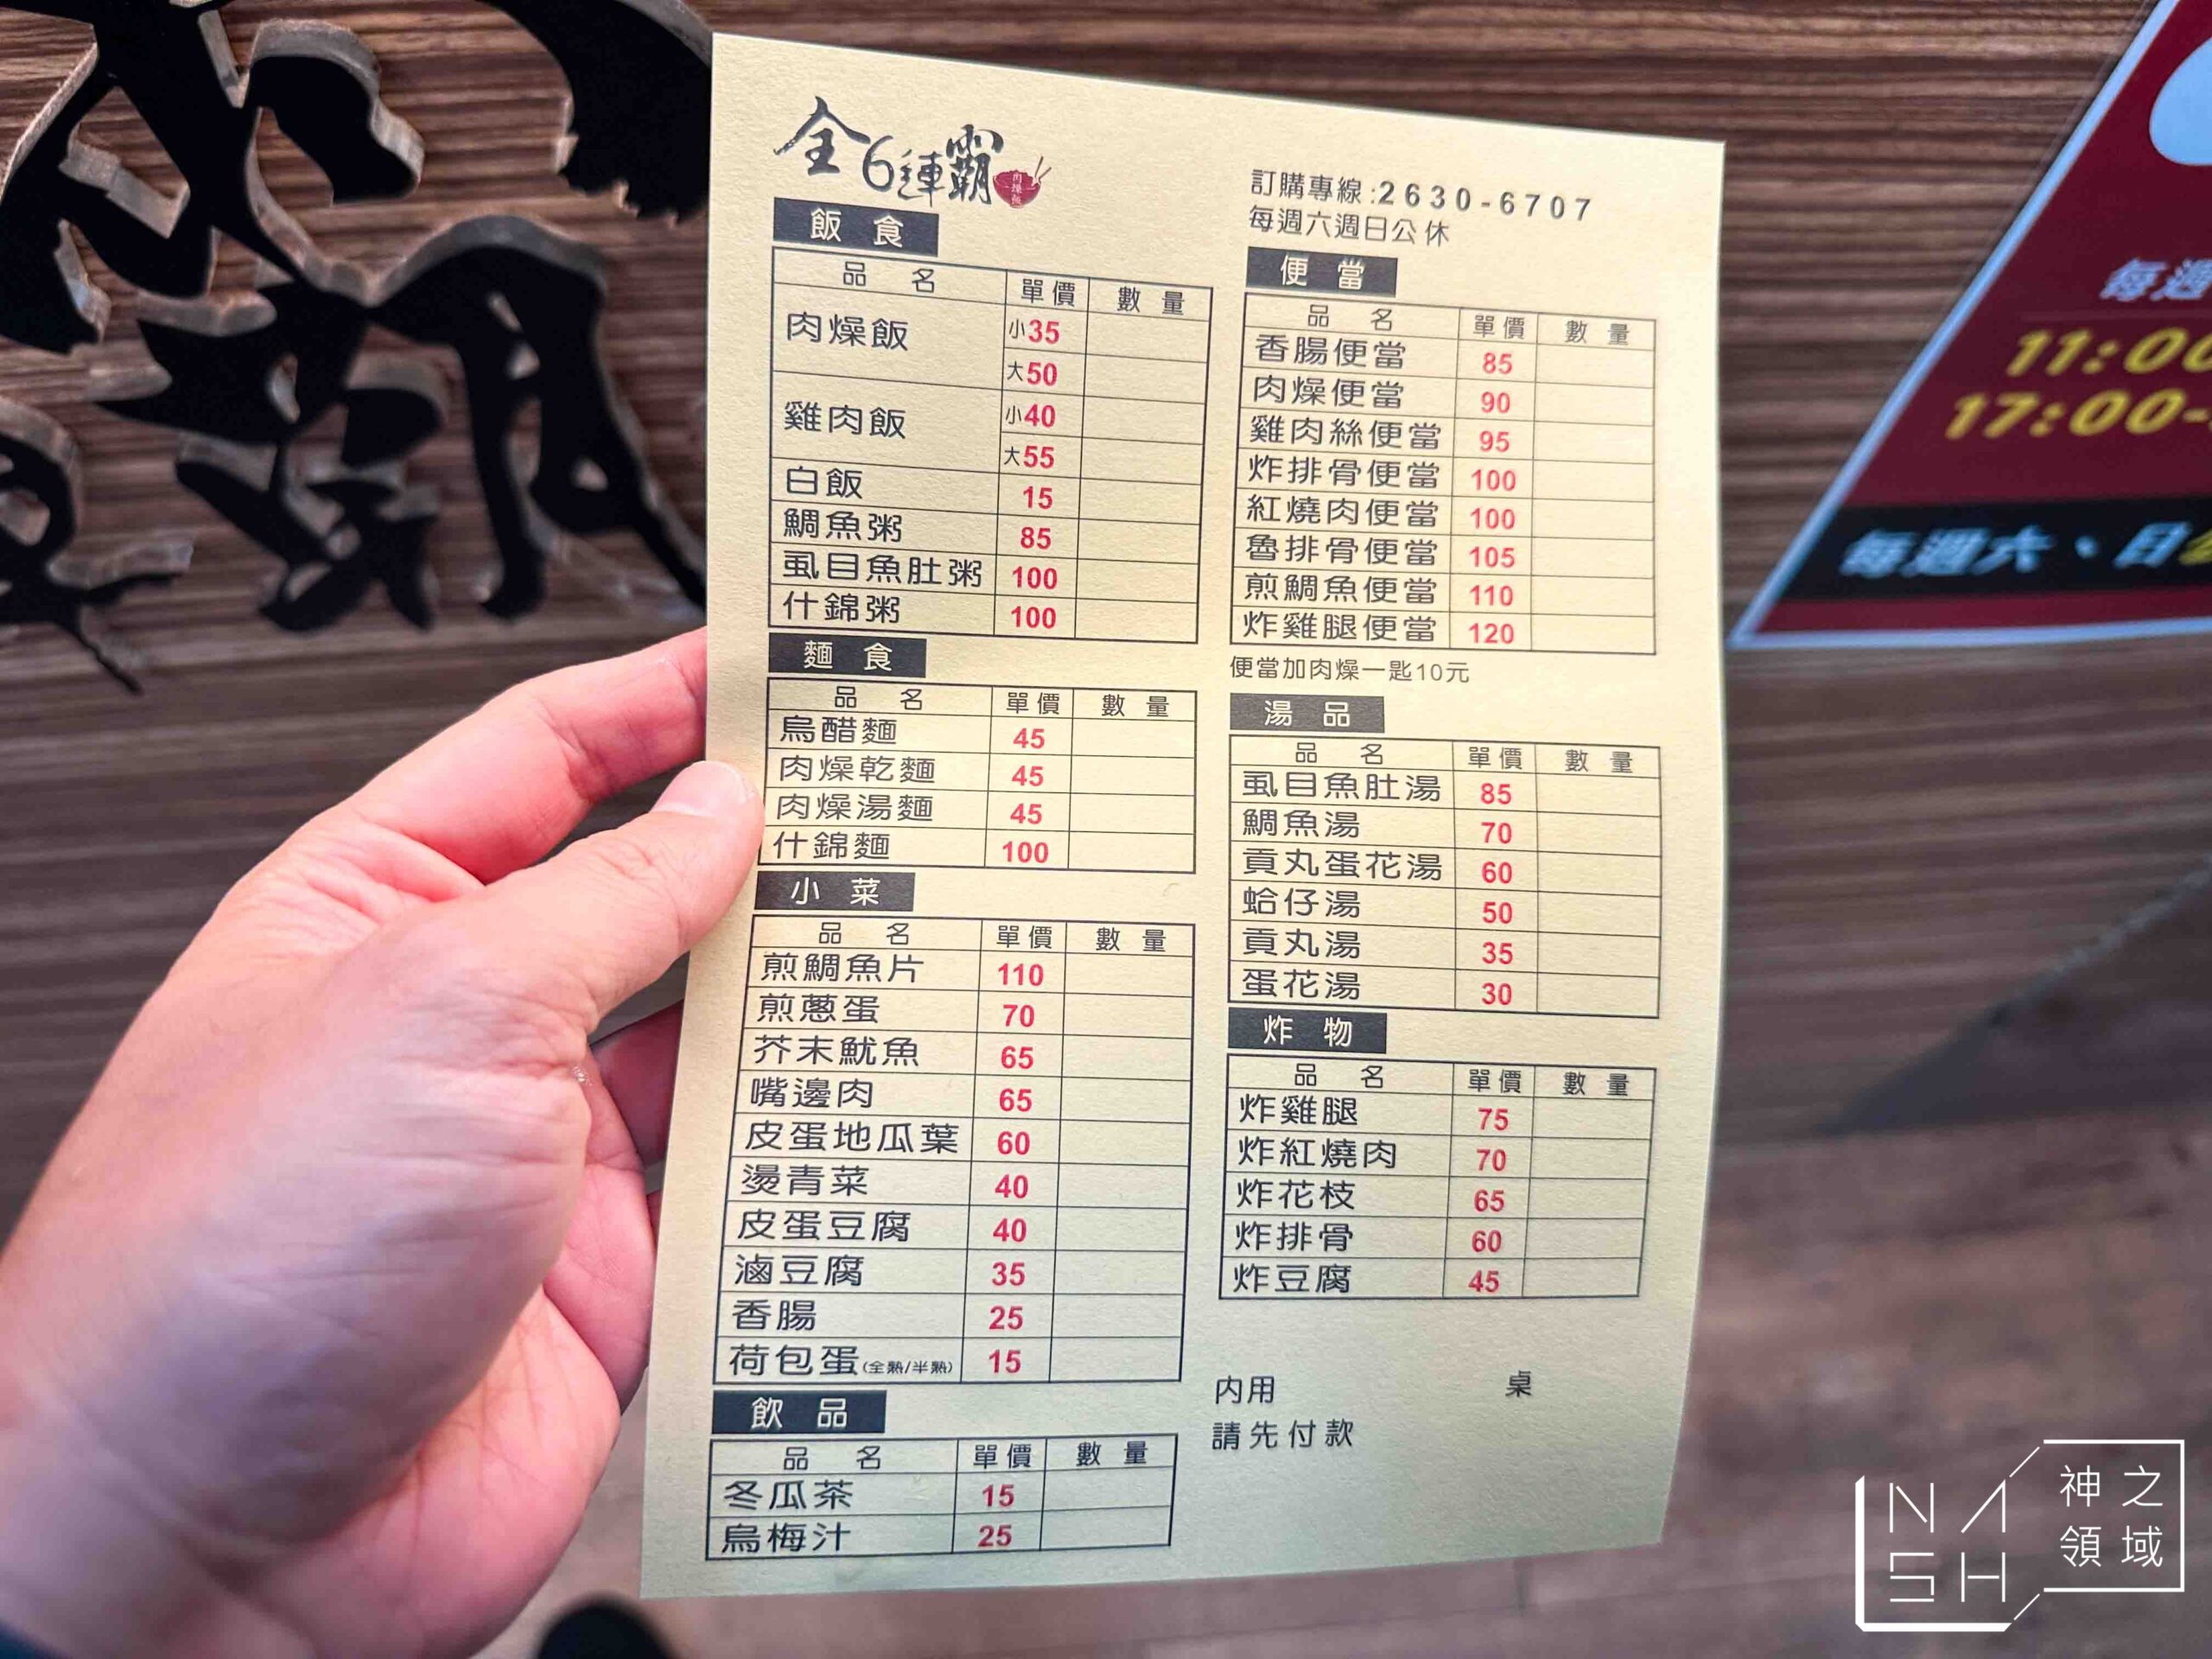 全6連霸
肉燥飯
飯 食
品 名 單價 數量
肉燥飯 小35
大50
雞肉飯 小40
大55
白飯 15
鯛魚粥 85
虱目魚肚粥 100
什錦粥 100
麵 食
品 名 單價 數量
烏醋麵 45
肉燥乾麵 45
肉燥湯麵 45
什錦麵 100
小 菜
品 名 單價 數量
煎鯛魚片 110
煎蔥蛋 70
芥末魷魚 65
嘴邊肉 65
皮蛋地瓜葉 60
燙青菜 40
皮蛋豆腐 40
滷豆腐 35
香腸 25
荷包蛋(全熟/半熟) 15
飲 品
品 名 單價 數量
冬瓜茶 15
烏梅汁 25
訂購專線:2630-6707
每週六週日公休
便 當
品 名 單價 數量
香腸便當 85
肉燥便當 90
雞肉絲便當 95
炸排骨便當 100
紅燒肉便當 100
魯排骨便當 105
煎鯛魚便當 110
炸雞腿便當 120
便當加肉燥一匙10元
湯 品
品 名 單價 數量
虱目魚肚湯 85
鯛魚湯 70
貢丸蛋花湯 60
蛤仔湯 50
貢丸湯 35
蛋花湯 30
炸 物
品 名 單價 數量
炸雞腿 75
炸紅燒肉 70
炸花枝 65
炸排骨 60
炸豆腐 45
內用 桌
請先付款
每週
11:00
17:00-
每週六、日
NASH
神之
領域